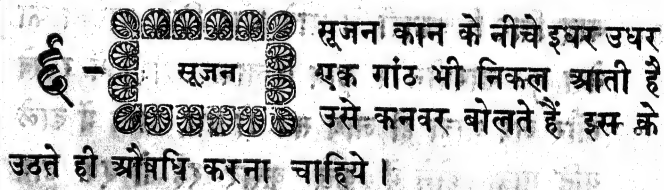 सूजन कान के नीचे इधर उधर
६ - सूजन एक गांठ भी निकल आती है
उसे कनवर बोलते हैं इस के
उठते ही औषधि करना चाहिये ।